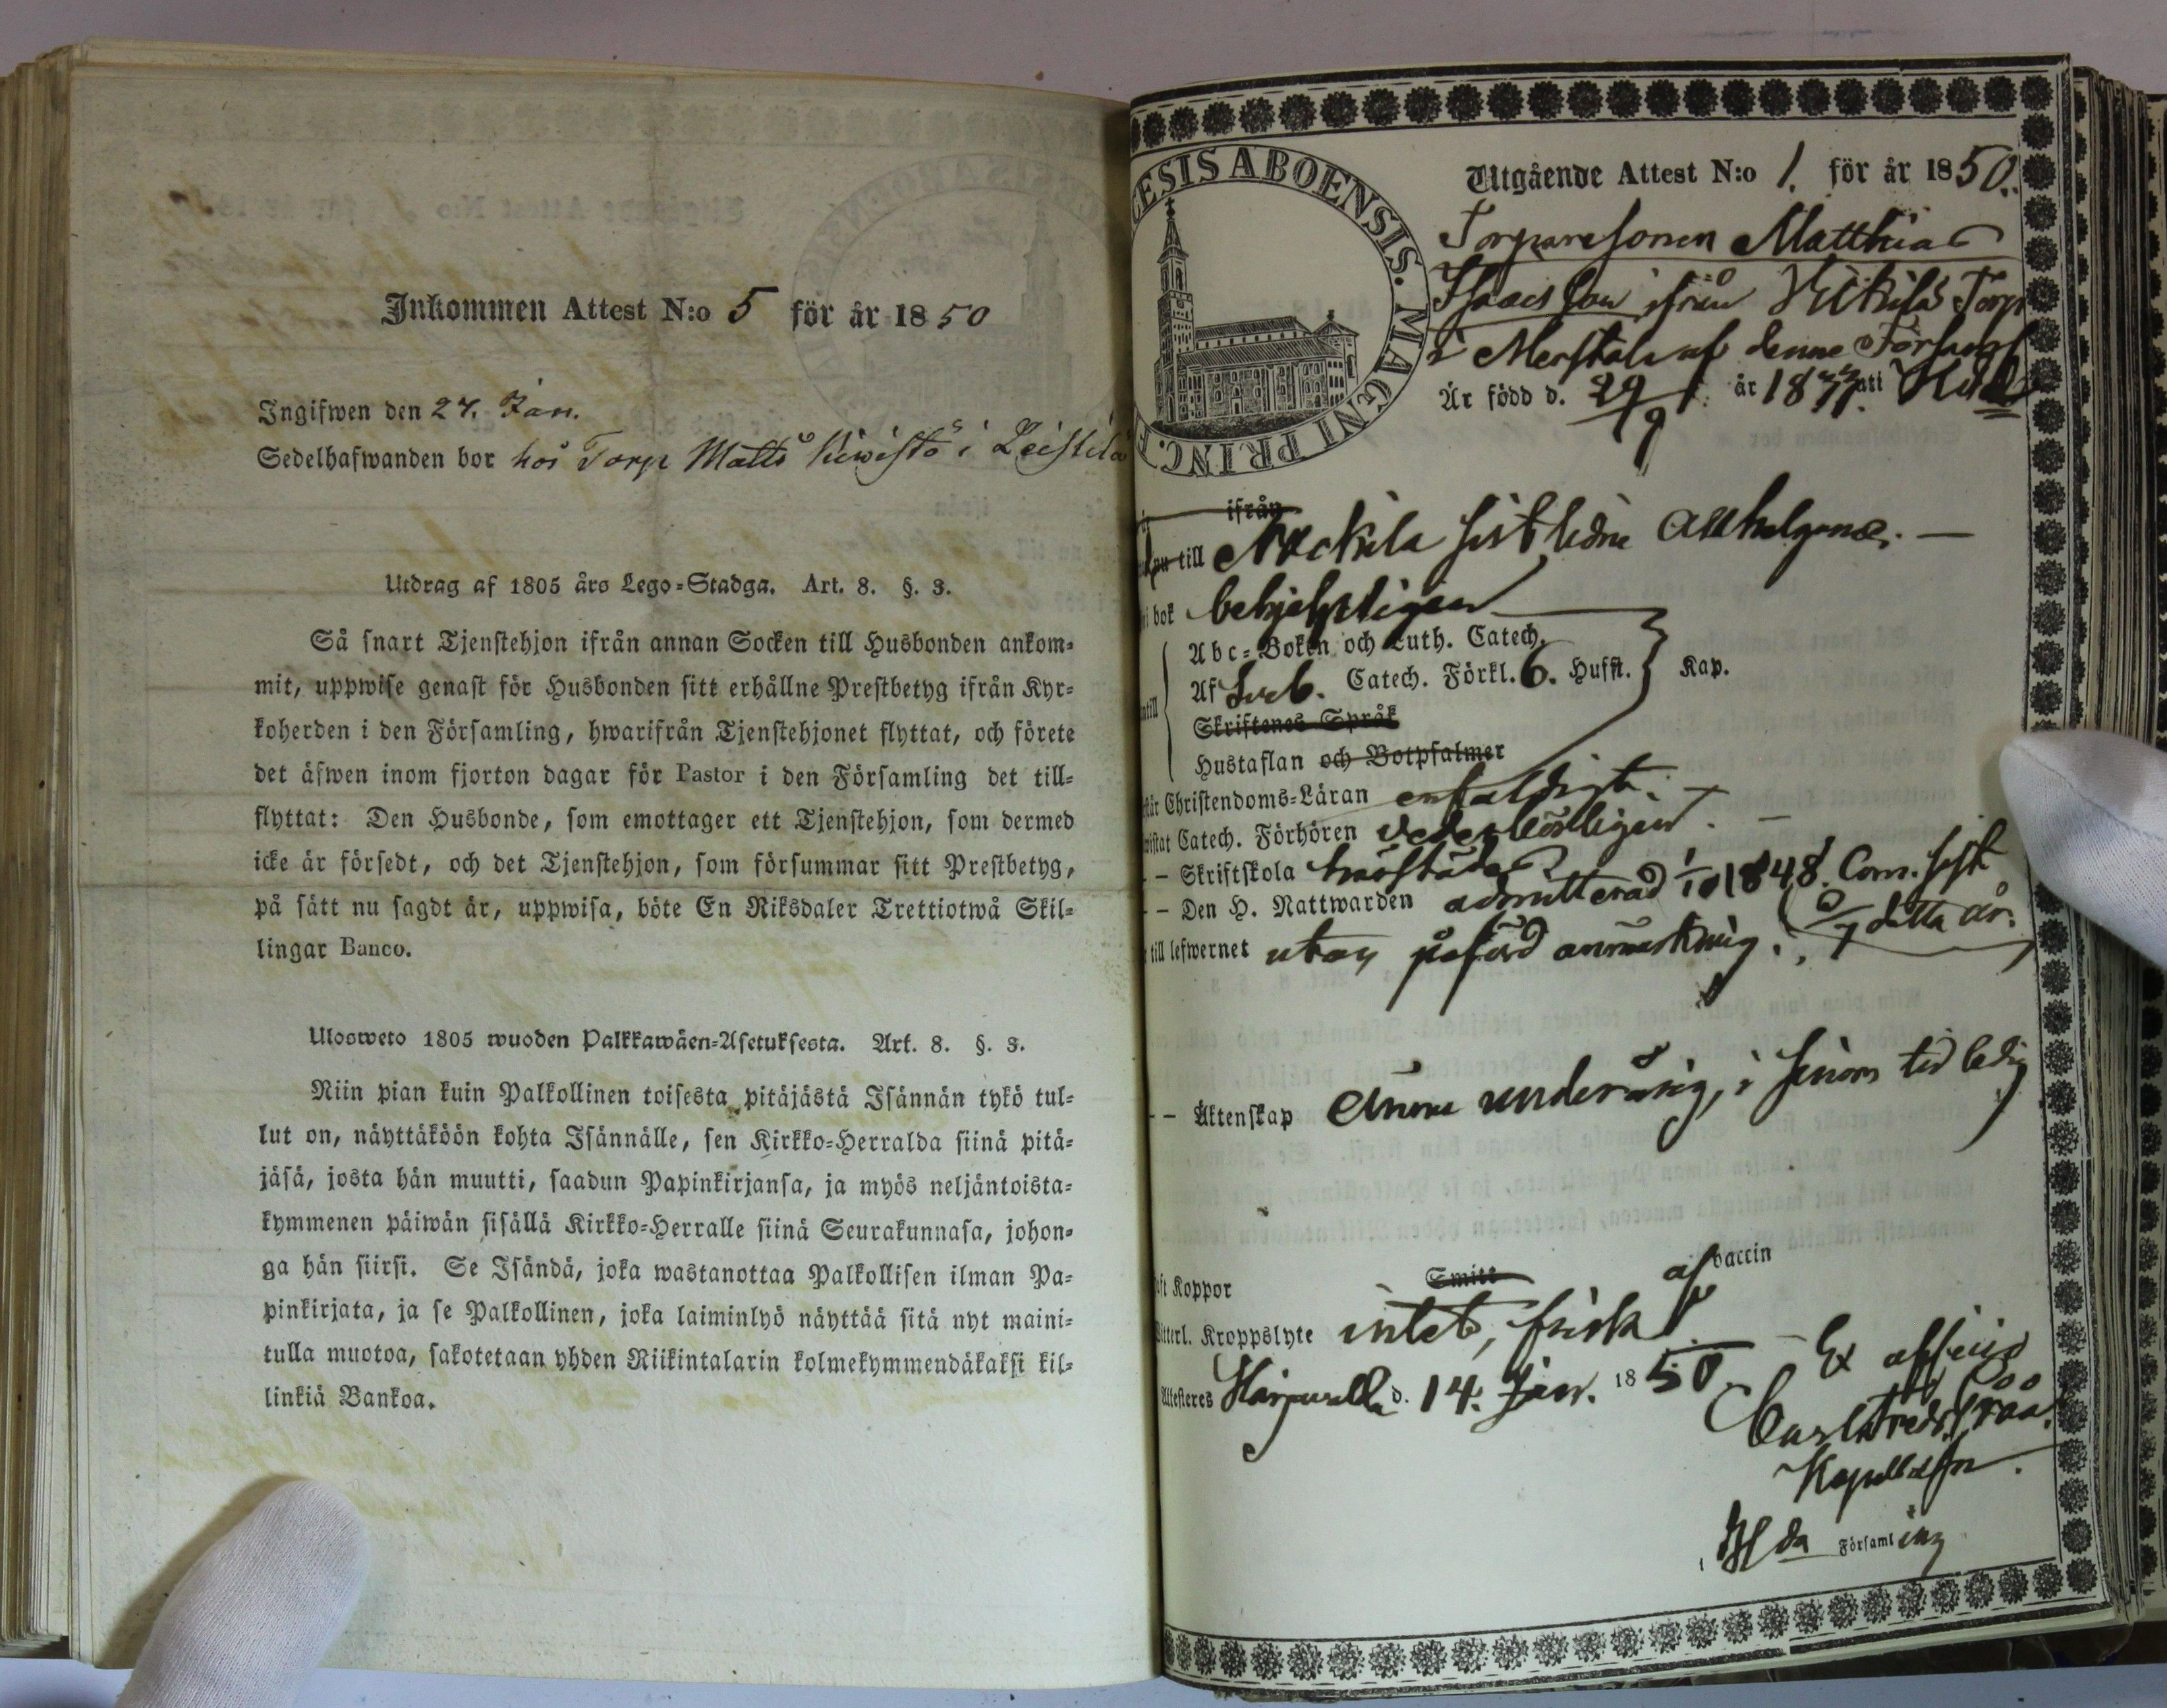 Inkommen Attest N:o 5 för år 1850
Ingifwen den 24. Jan.
Sedelhafwanden bor hos Torp Matts Kiwistö i Leistilä
Utdrag af 1805 års Lego-Stadga. Art. 8. §. 3.
Så snart Tjenstehjon ifrån annan Socken till Husbonden ankom-
mit, uppwise genast för Husbonden sitt erhållne Prestbetyg ifrån Kyr-
koherden i den Församling, hwarifrån Tjenstehjonet flyttat, och förete
det äfwen inom fjorton dagar för Pastor i den Församling det till-
flyttat: Den Husbonde, som emottager ett Tjenstehjon, som dermed
icke är försedt, och det Tjenstehjon, som försummar sitt Prestbetyg,
på sätt nu sagdt är, uppwisa, böte En Riksdaler Trettiotwå Skil-
lingar Banco.
Ulosweto 1805 wuoden Palkkawäen-Asetuksesta. Art. 8. §. 3.
Niin pian kuin Palkollinen toisesta pitäjästä Isännän tykö tul-
lut on, näyttäköön kohta Isännälle, sen Kirkko-Herralda siinä pitä-
jäsä, josta hän muutti, saadun Papinkirjansa, ja myös neljäntoista-
kymmenen päiwän sisällä Kirkko-Herralle siinä Seurakunnasa, johon-
ga hän siirsi. Se Isändä, joka wastanottaa Palkollisen ilman Pa-
pinkirjata, ja se Palkollinen, joka laiminlyö näyttää sitä nyt maini-
tulla muotoa, sakotetaan yhden Riikintalarin kolmekymmendäkaksi kil-
linkiä Bankoa.
ESIS ABOENSIS. MAGNI PRINC. F
Utgående Attest N:o 1. för år 1850.
Torparesonen Matthias
Isaacsson ifrån Torp
i af denne Församl
Är född d. 29/9 år 1833 uti
ifrån
nu till sistledne Allhelgona. —
i bok behjelpligen
Abc-Boken och Luth. Catech.
Af Sveb. Catech. Förkl. 6. Hufst. Kap.
Skriftenes Språk
Hustaflan och Botpsalmer
står Christendoms-Läran enfaldigt. —
wistat Catech. Förhören vederbörligen. —
— Skriftskola
— Den H. Nattwarden admitterad 1/10 1848. Com. sist
till lefwernet utan påförd anmärkning. detta år.
— Äktenskap ännu underårig, i sinom tid ledig
aft Koppor Smitt af vaccin
Witterl. Kroppslyte intet, frisk
Attesteres d. 14. Jan. 1850. — Ex officio
Carl Fredr.
Kapellan.
i församling